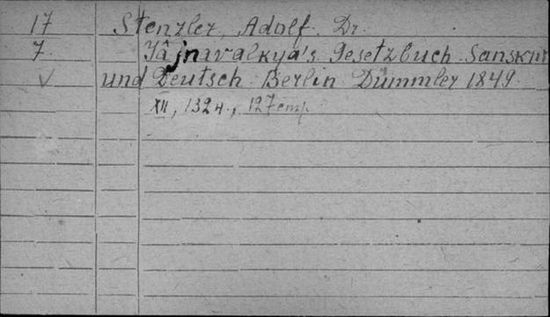 17 Stenzler, Adolf. Dr.
7. Yâjnavalkya's Gesetzbuch. Sanskrit
V und Deutsch. Berlin Dümmler 1849.
XII, 132 н., 127 стр.